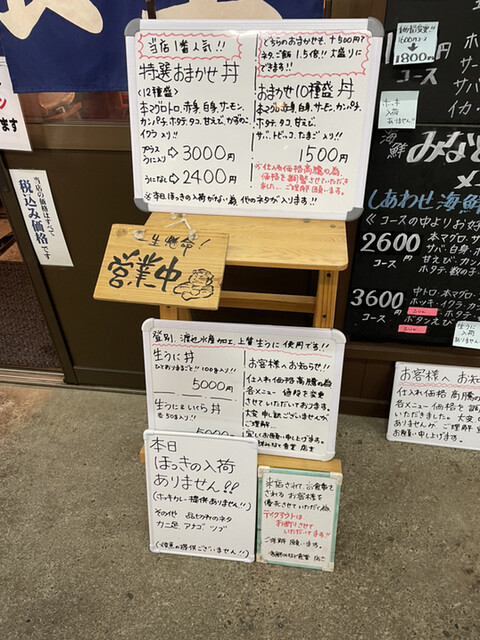 当店1番人気!!
特選おまかせ丼
(12種盛)
本マグロトロ、赤身、白身、サーモン、
カンパチ、ホタテ、タコ、甘えび、かずのこ、
イクラ入り!!
プラス
うに入り⇨3000円
うになし⇨2400円
どちらのおまかせも、+500円で
ネタ、ご飯1.5倍!!大盛りに
できます!!
おまかせ10種盛丼
本マグロ赤身、白身、サーモン、カンパチ、
ホタテ、タコ、甘えび、
サバ、トビッコ、たまご入り!!
1500円
※仕入れ価格高騰の為、
価格を調整させていただき
ました… ご理解願います。
※本日ほっきの入荷がない為 他のネタが入ります!!
営業中
当店の価格はすべて
税込み価格です
登別、渡辺水産加工、上質生うに使用です!!
生うに丼
5000円
生うにといくら丼
5000円
お客様へお知らせ!!
仕入れ価格高騰の為
各メニュー価格を変更
させていただいております。
大変申し訳ございませんが
ご理解…
宜しくお願い申し上げます。
店主
本日
ほっきの入荷
ありません!!
(ホッキカレー提供ありません!!)
その他 品切れのネタ
カニ足 アナゴ ツブ
来店されて、お食事を
されるお客様を
優先させていただく為
テイクアウトは
お断りさせて
いただいてます!!
ご理解願います。
店主
1800円
コース
ホッキ
入荷
ありません!
海鮮
しあわせ海鮮
≪コースの中よりお好
2600円
コース
本マグロ・サ
サバ・白身・ホ
甘えび・カン
ホタテ・数の子
3600円
コース
中トロ・本マグロ・
ホッキ・イクラ・カ
ボタンえび
生うに
入荷
ありません
お客様へお知
仕入れ価格高騰の
各メニュー価格を調
いただきました。大変
ありませんが ご理解
お願い申し上げます。